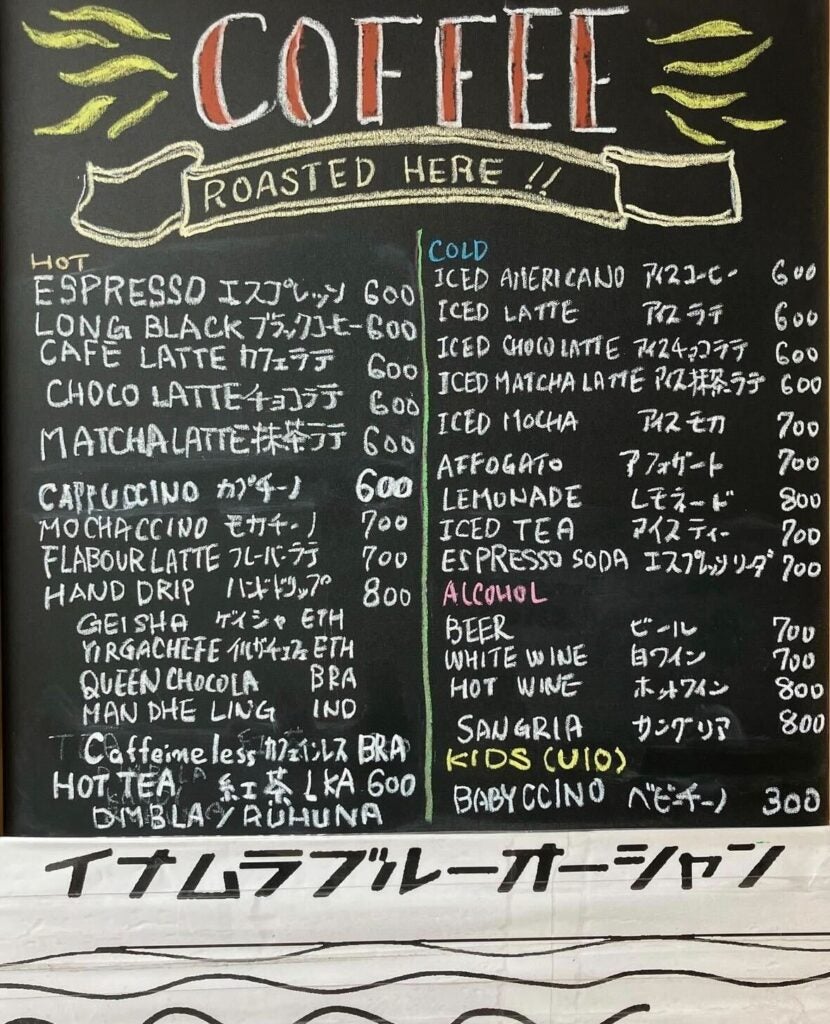 COFFEE
ROASTED HERE !!
HOT
ESPRESSO エスプレッソ 600
LONG BLACK ブラックコーヒー 600
CAFE LATTE カフェラテ 600
CHOCO LATTE チョコラテ 600
MATCHA LATTE 抹茶ラテ 600
CAPPUCCINO カプチーノ 600
MOCHACCINO モカチーノ 700
FLABOUR LATTE フレーバーラテ 700
HAND DRIP ハンドドリップ 800
GEISHA ゲイシャ ETH
YIRGACHEFE イルガチェフェ ETH
QUEEN CHOCOLA BRA
MAN DHE LING IND
Caffeineless カフェインレス BRA
HOT TEA 紅茶 LKA 600
DMBLA / RUHUNA
COLD
ICED AMERICANO アイスコーヒー 600
ICED LATTE アイスラテ 600
ICED CHOCO LATTE アイスチョコラテ 600
ICED MATCHA LATTE アイス抹茶ラテ 600
ICED MOCHA アイスモカ 700
AFFOGATO アフォガート 700
LEMONADE レモネード 800
ICED TEA アイスティー 700
ESPRESSO SODA エスプレッソソーダ 700
ALCOHOL
BEER ビール 700
WHITE WINE 白ワイン 700
HOT WINE ホットワイン 800
SANGRIA サングリア 800
KIDS (U10)
BABYCCINO ベビーチーノ 300
イナムラブルーオーシャン